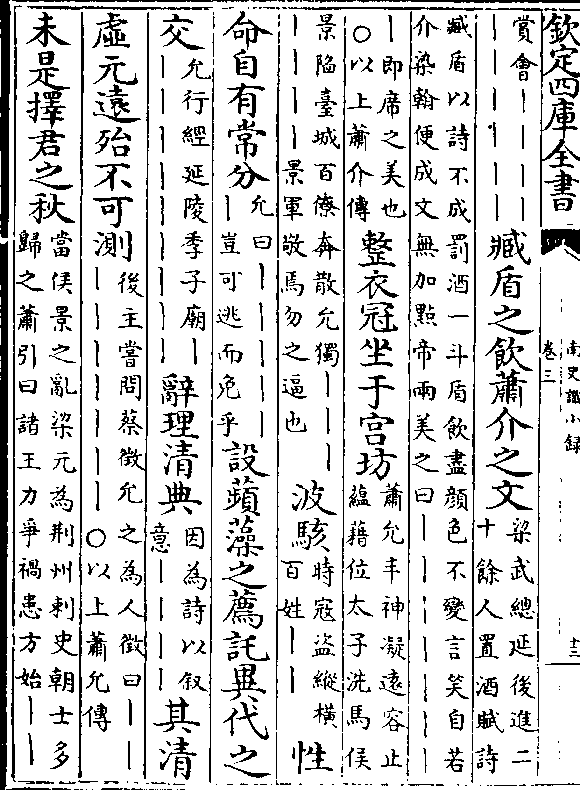 欽定四庫全書
南史識小録
卷三
十三
賞會｜｜｜｜
｜｜｜｜｜
臧盾之飲蕭介之文
梁武總延後進二
十餘人置酒賦詩
臧盾以詩不成罰酒一斗盾飲盡顔色不變言笑自若
介染翰便成文無加點帝兩美之曰｜｜｜｜｜｜｜
｜即席之美也
○以上蕭介傳
整衣冠坐于宫坊
蕭允丰神凝遠容止
藴藉位太子洗馬侯
景陷臺城百僚奔散允獨｜｜｜
｜｜｜｜景軍敬焉勿之逼也
波駭
時寇盜縱橫
百姓｜｜
性
命自有常分
允曰｜｜｜｜｜
｜豈可逃而免乎
設蘋藻之薦託異代之
交
允行經延陵季子廟｜
｜｜｜｜｜｜｜｜
辭理清典
因為詩以叙
意｜｜｜｜
其清
虚元遠殆不可測
後主嘗問蔡徵允之為人徵曰｜｜
｜｜｜｜｜｜｜○以上蕭允傳
未是擇君之秋
當侯景之亂梁元為荆州刺史朝士多
歸之蕭引曰諸王力爭禍患方始｜｜